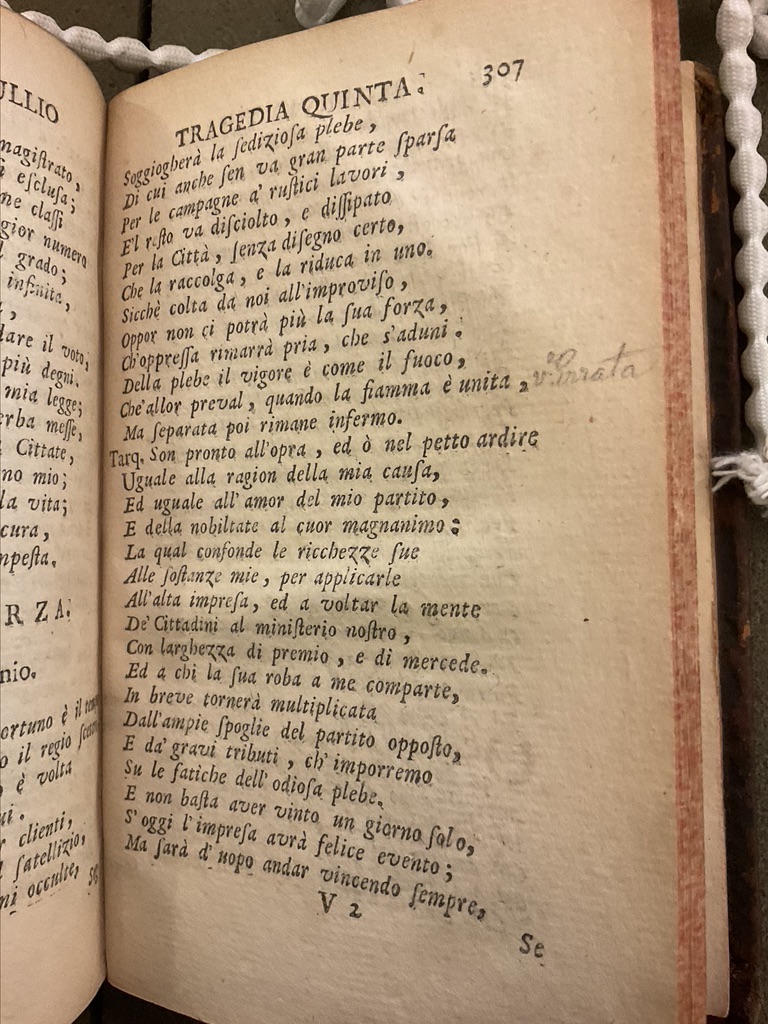 ULLIO
magistrato,
i esclusa;
me classi
gior numero
l grado;
infinita,
dare il voto,
più degni.
mia legge;
erba messe,
Cittate,
no mio;
la vita;
cura,
mpesta.
RZA.
nio.
ortuno è il
o il regio
è volta
ui.
r clienti,
l satellizio,
ni occulte,
TRAGEDIA QUINTA. 307
Soggiogherà la ſedizioſa plebe,
Di cui anche ſen va gran parte ſparſa
Per le campagne a' ruſtici lavori,
E'l reſto va diſciolto, e diſſipato
Per la Città, ſenza diſegno certo,
Che la raccolga, e la riduca in uno.
Sicchè colta da noi all'improviſo,
Oppor non ci potrà più la ſua forza,
Ch'oppreſſa rimarrà pria, che s'aduni.
Della plebe il vigore è come il fuoco,
Che'allor preval, quando la fiamma è unita, v. Errata
Ma ſeparata poi rimane infermo.
Tarq. Son pronto all'opra, ed ò nel petto ardire
Uguale alla ragion della mia cauſa,
Ed uguale all'amor del mio partito,
E della nobiltate al cuor magnanimo:
La qual confonde le ricchezze ſue
Alle ſoſtanze mie, per applicarle
All'alta impreſa, ed a voltar la mente
De' Cittadini al miniſterio noſtro,
Con larghezza di premio, e di mercede.
Ed a chi la ſua roba a me comparte,
In breve tornerà multiplicata
Dall'ampie ſpoglie del partito oppoſto,
E da' gravi tributi, ch'imporremo
Su le fatiche dell'odioſa plebe.
E non baſta aver vinto un giorno ſolo,
S'oggi l'impreſa avrà felice evento;
Ma ſarà d'uopo andar vincendo ſempre,
V 2
Se